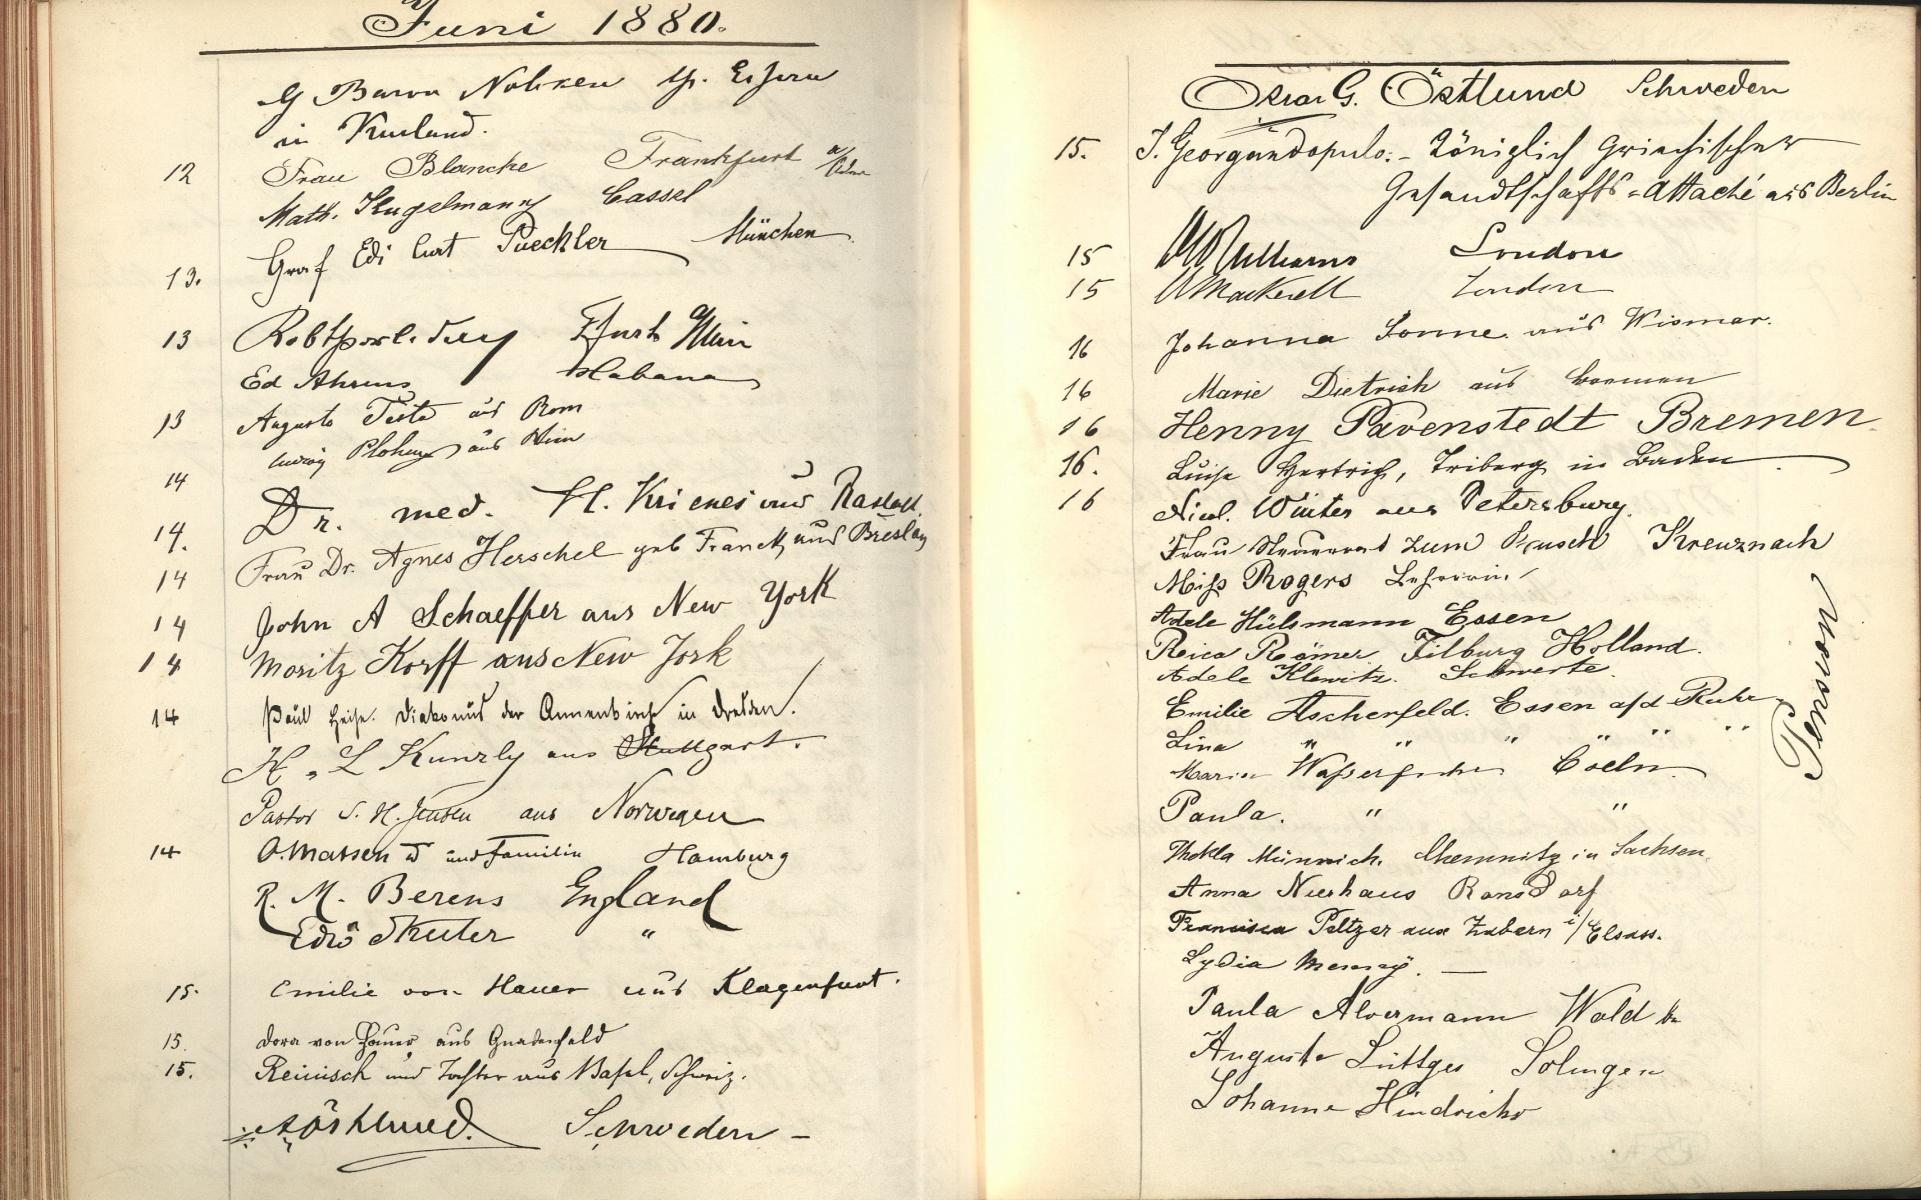 Juni 1880.
G Baron Nolcken
in Kurland.
12 Frau Blancke Frankfurt a/Oder
Math. Kugelmann Cassel
13. Graf Edi Curt Pueckler München.
13 Frkfurt a/Main
Ed Ahrens Habana
13 Augusto Testa aus Rom
Ludwig aus Wien
14
14. Dr. med. H. Krienes aus Rastatt.
14 Frau Dr. Agnes Herschel geb Franck aus Breslau
14 John A Schaeffer aus New York
14 Moritz Korff aus New York
14 Paul Heise. Diakonus der Annenkirche in Dresden.
H. L Kunzly aus Stuttgart.
Pastor S. H. Jensen aus Norwegen
14 O. Matsen und Familie Hamburg
R. M. Berens England
Edw Skuter "
15. Emilie von Hauer aus Klagenfurt.
15. Dora von Hauer aus Gnadenfeld
15. Reinisch und Tochter aus Basel, Schweiz.
Östlund. Schweden –
Oscar G. Östlund Schweden
15. J. Georgandopulo. – Königlich Griechischer
Gesandtschafts-Attaché aus Berlin
15 Williams London
15 Mackrell London
16 Johanna Sonne aus Wismar.
16 Marie Dietrich aus Bremen
16 Henny Pavenstedt Bremen.
16. Luise Hertrich, Triberg in Baden.
16 Nicol. Winter aus Petersburg.
Frau zum Kreuznach
Miss Rogers Lehrerin
Adele Hülsmann Essen
Reica Roämer Tilburg Holland.
Adele Klewitz. Schwerte.
Emilie Ascherfeld. Essen a/d Ruhr
Lina " " " " " "
Maria Wasserfuhr Coeln.
Paula. " "
Thekla Münnich. Chemnitz in Sachsen.
Anna Nierhaus Ronsdorf
Francisca Peltzer aus Zabern i/Elsass.
Lydia —
Paula Alvermann Wald
Auguste Lüttges Solingen
Johanne Hindrichs
Pension